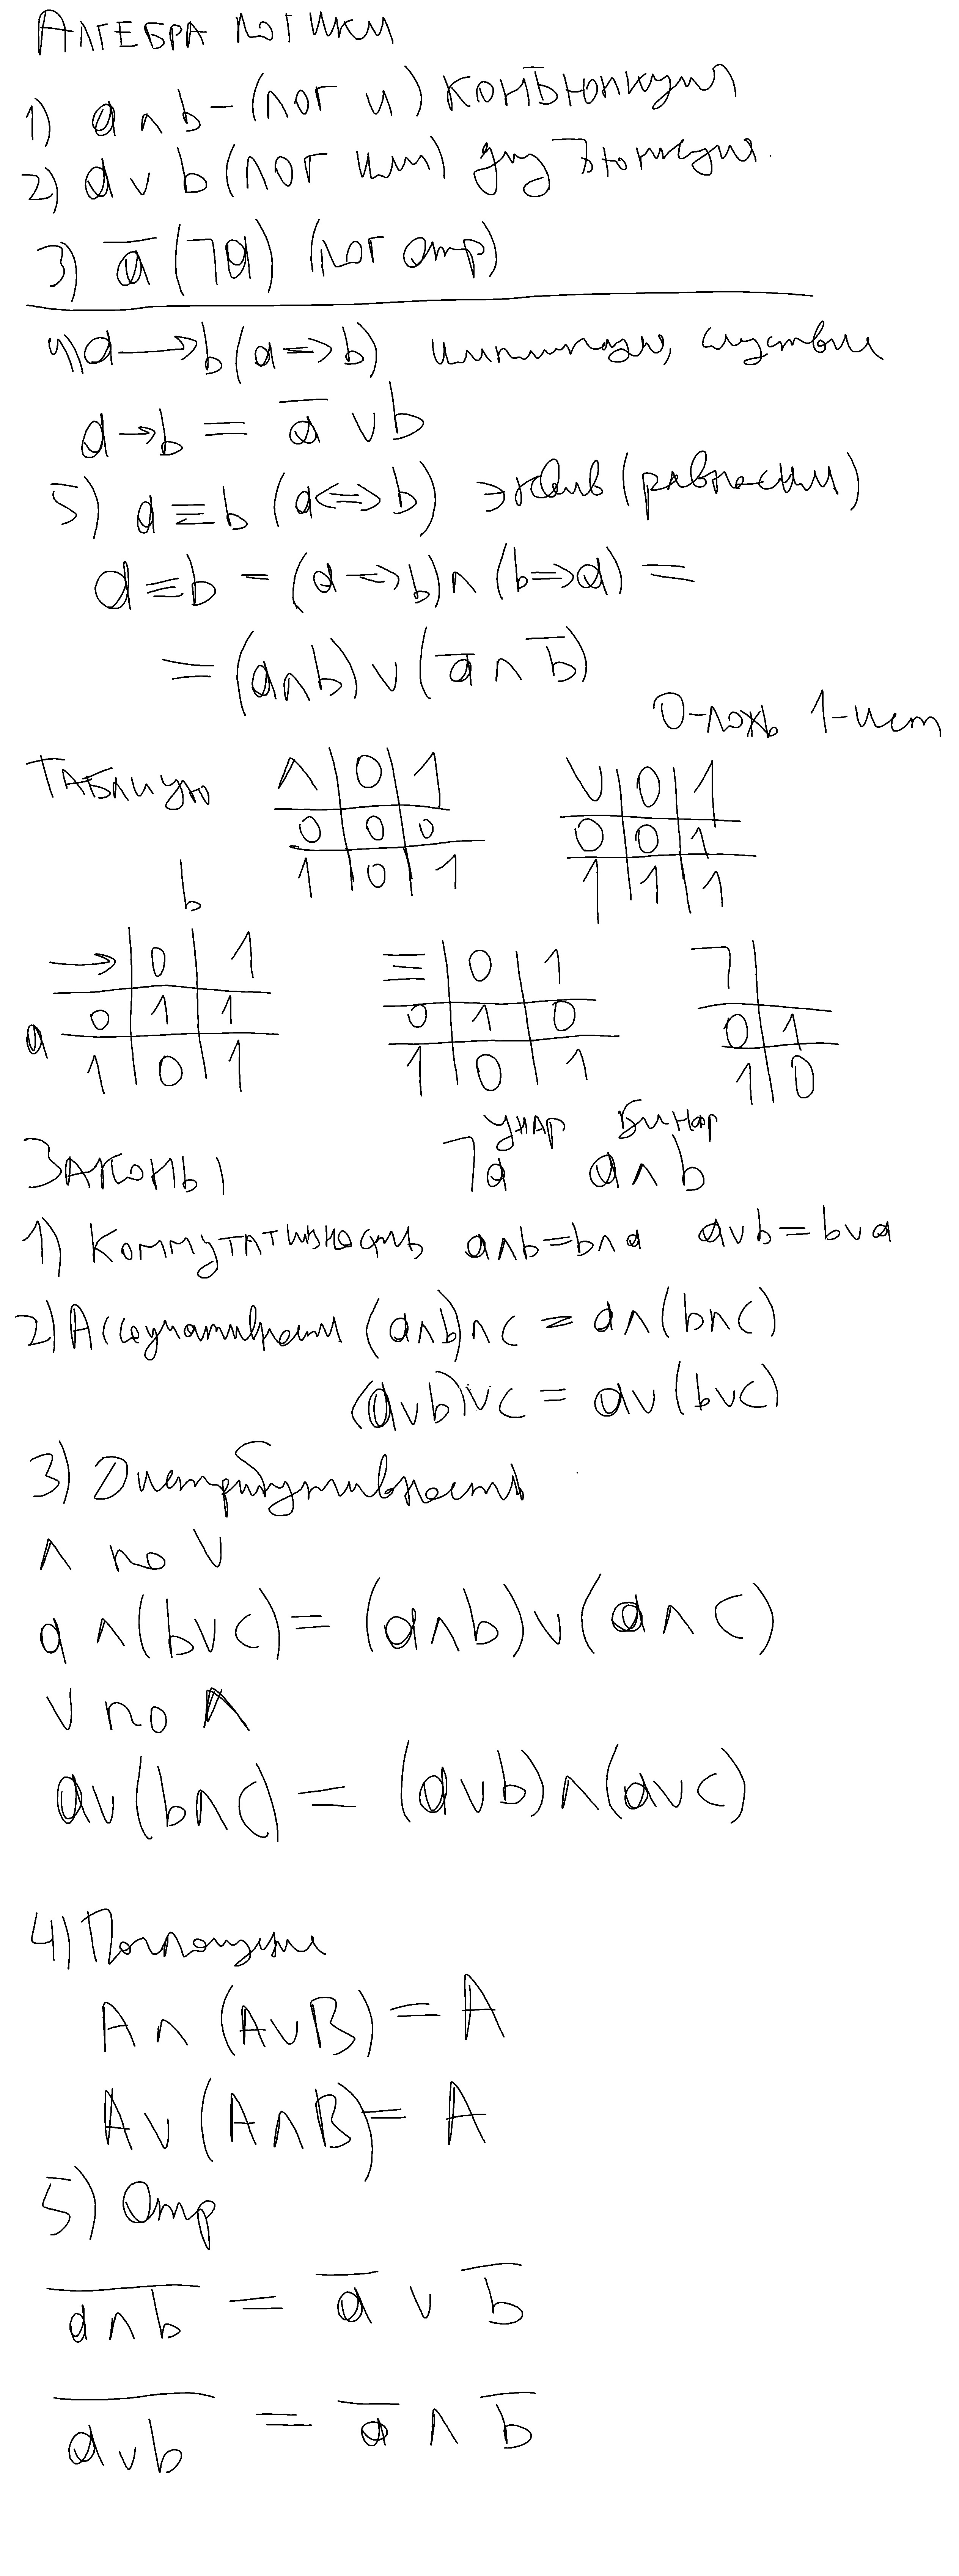 Алгебра логики
1) a ∧ b - (лог и) конъюнкция
2) a ∨ b (лог или) дизъюнкция.
3) a̅ (¬a) (лог отр)
4) a → b (a => b) импликация, следствие
a → b = a̅ ∨ b
5) a ≡ b (a <=> b) эквив (равносил)
a ≡ b = (a => b) ∧ (b => a) =
= (a ∧ b) ∨ (a̅ ∧ b̅)
0-ложь 1-ист
Таблицы
∧ | 0 | 1
0 | 0 | 0
1 | 0 | 1
∨ | 0 | 1
0 | 0 | 1
1 | 1 | 1
b
→ | 0 | 1
0 | 1 | 1
a
1 | 0 | 1
≡ | 0 | 1
0 | 1 | 0
1 | 0 | 1
¬ |
0 | 1
1 | 0
унар бинар
Законы ¬a a ∧ b
1) Коммутативность a∧b=b∧a a∨b=b∨a
2) Ассоциативности (a∧b)∧c = a∧(b∧c)
(a∨b)∨c = a∨(b∨c)
3) Дистрибутивность
∧ по ∨
a ∧ (b∨c) = (a∧b) ∨ (a∧c)
∨ по ∧
a∨(b∧c) = (a∨b)∧(a∨c)
4) Поглощение
A ∧ (A∨B) = A
A ∨ (A∧B) = A
5) Отр
a̅ ̅∧̅ ̅b̅ = a̅ ∨ b̅
a̅ ̅∨̅ ̅b̅ = a̅ ∧ b̅